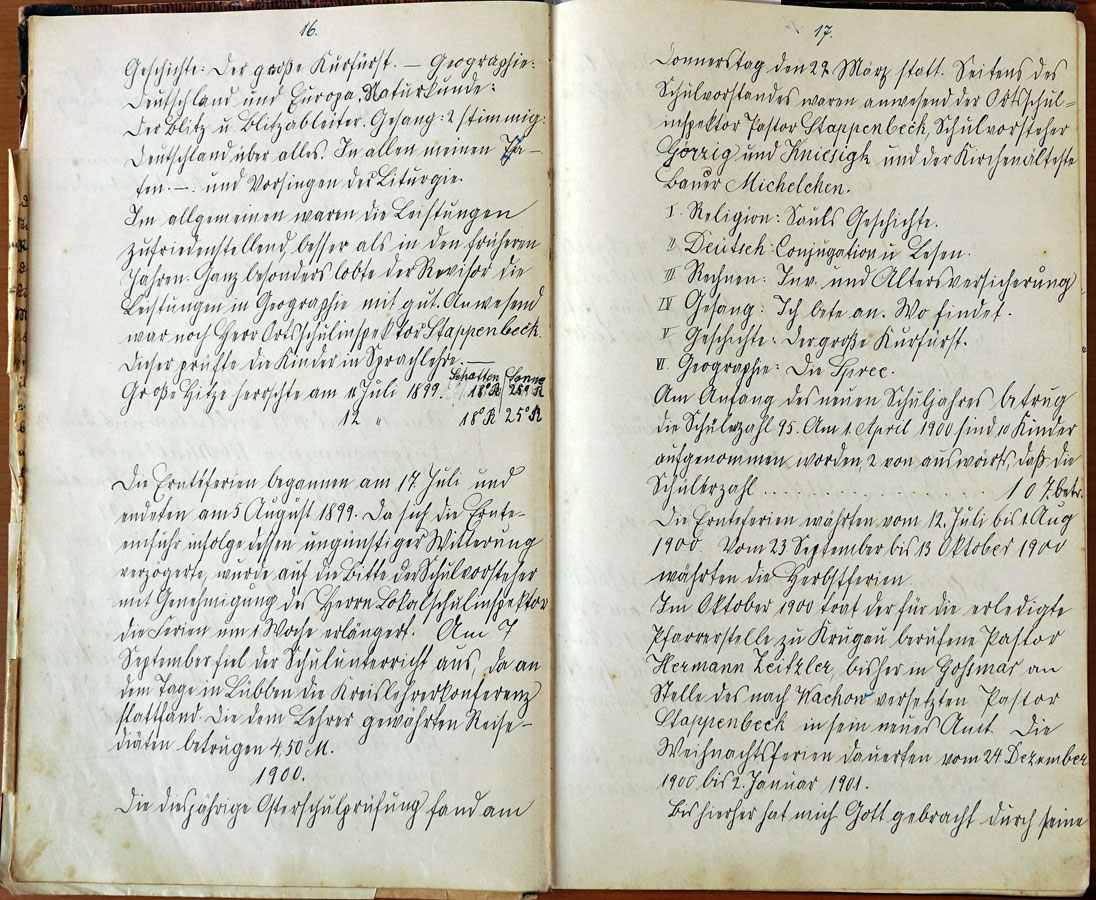 16.
Geschichte: Der große Kurfürst. — Geographie:
Deutschland und Europa. Naturkunde:
Der Blitz u Blitzableiter. Gesang: 2 stimmig:
Deutschland über alles. In allen meinen Tha-
ten. —. und Vorsingen der Liturgie.
Im allgemeinen waren die Leistungen
zufriedenstellend, besser als in den früheren
Jahren. Ganz besonders lobte der Revisor die
Leistungen in Geographie mit gut. Anwesend
war noch Herr Ortsschulinspektor Stappenbeck.
Dieser prüfte die Kinder in Sprachlehre. —
Schatten Sonne
Große Hitze herrschte am Juli 1899. 18° R 28° R
12 „ 18° R 25° R
Die Ernteferien begannen am 17. Juli und
endeten am 5 August 1899. Da sich die Ernte-
einfuhr infolge dessen ungünstiger Witterung
verzögerte, wurde auf die Bitte der Schulvorsteher
mit Genehmigung des Herrn Lokalschulinspektor
die Ferien um 1 Woche erlängert. Am 7
September fiel der Schulunterricht aus, da an
dem Tage in Lübben die Kreislehrerkonferenz
stattfand. Die dem Lehrer gewährten Reise-
diäten betrugen 4,50 M.
1900.
Die diesjährige Osterschulprüfung fand am
17.
Donnerstag den 29. März statt. Seitens des
Schulvorstandes waren anwesend der Ortsschul=
inspektor Pastor Stappenbeck, Schulvorsteher
Görzig und Kniesigk und der Kirchenälteste
Bauer Michelchen.
I. Religion: Sauls Geschichte.
II Deutsch: Conjugation u Lesen.
III Rechnen: Inv. und Altersversicherung
IV Gesang: Ich bete an. Wo findet.
V Geschichte: Der große Kurfürst.
VI. Geographie: Die Spree.
Am Anfang des neuen Schuljahres betrug
die Schülerzahl 95. Am 1. April 1900 sind 10 Kinder
aufgenommen worden, 2 von auswärts, daß die
Schülerzahl .......... 107. betr.
Die Ernteferien währten vom 12. Juli bis 1. Aug
1900. Vom 23 September bis 13 Oktober 1900
währten die Herbstferien.
Im Oktober 1900 trat der für die erledigte
Pfarrerstelle zu Krugau berufene Pastor
Hermann Zeitzler, bisher in Goßmar an
Stelle des nach Wachow versetzten Pastor
Stappenbeck in sein neues Amt. Die
Weihnachtsferien dauerten vom 24 Dezember
1900 bis 2. Januar 1901.
Bis hierher hat mich Gott gebracht durch seine